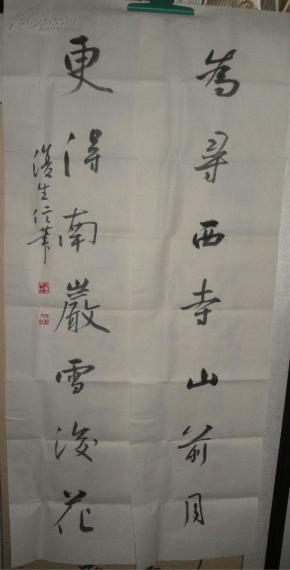 為尋西寺山前月
更得南巖雪後花
生信筆